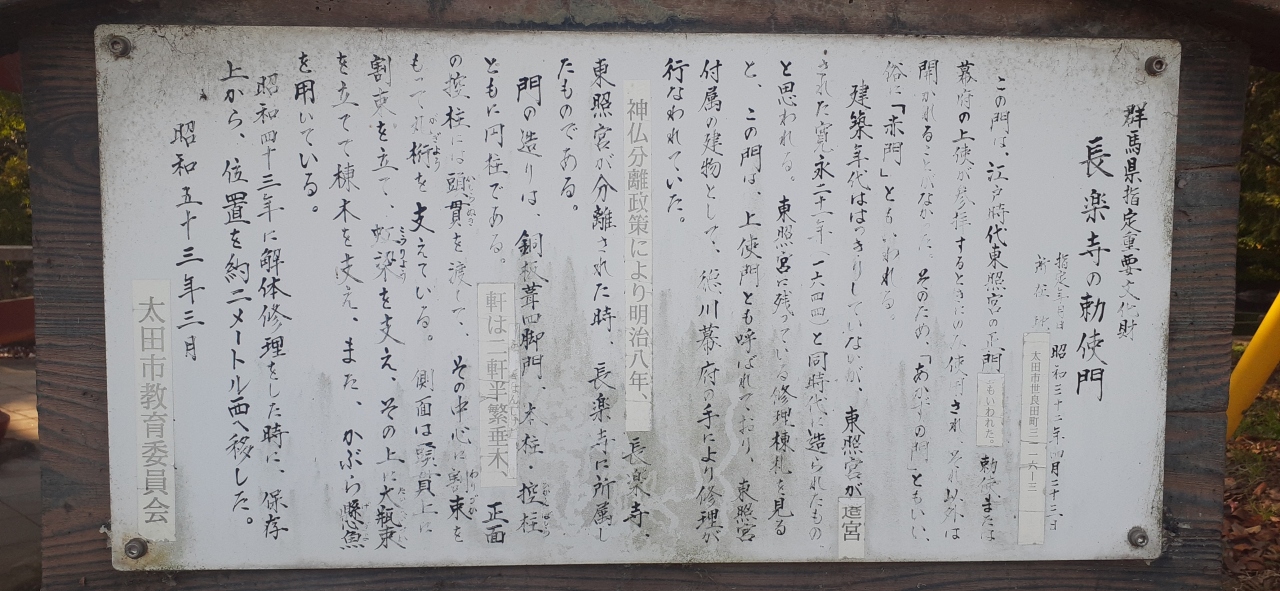 群馬県指定重要文化財
長楽寺の勅使門
指定年月日 昭和三十二年四月二十三日
所在地 太田市世良田町三一一六ー三
この門は、江戸時代東照宮の正門ともいわれた。勅使または
幕府の上使が参拝するときにのみ使用され、それ以外は
開かれることがなかった。そのため、「あかずの門」ともいい、
俗に「赤門」ともいわれる。
建築年代ははっきりしていないが、東照宮が造宮
された寛永二十一年(一六四四)と同時代に造られたもの
と思われる。東照宮に残っている修理棟札を見る
と、この門は、上使門とも呼ばれており、東照宮
付属の建物として、徳川幕府の手により修理が
行なわれていた。
神仏分離政策により明治八年、長楽寺、
東照宮が分離された時、長楽寺に所属し
たものである。
門の造りは、銅板葺四脚門、本柱・控柱
ともに円柱である。軒は二軒平繁垂木、正面
の控柱には頭貫を渡して、その中心に割束を
もって丸桁を支えている。側面は頭貫上に
割束を立て、虹梁を支え、その上に大瓶束
を立てて棟木を支え、また、かぶら懸魚
を用いている。
昭和四十三年に解体修理をした時に、保存
上から、位置を約二メートル西へ移した。
昭和五十三年三月
太田市教育委員会